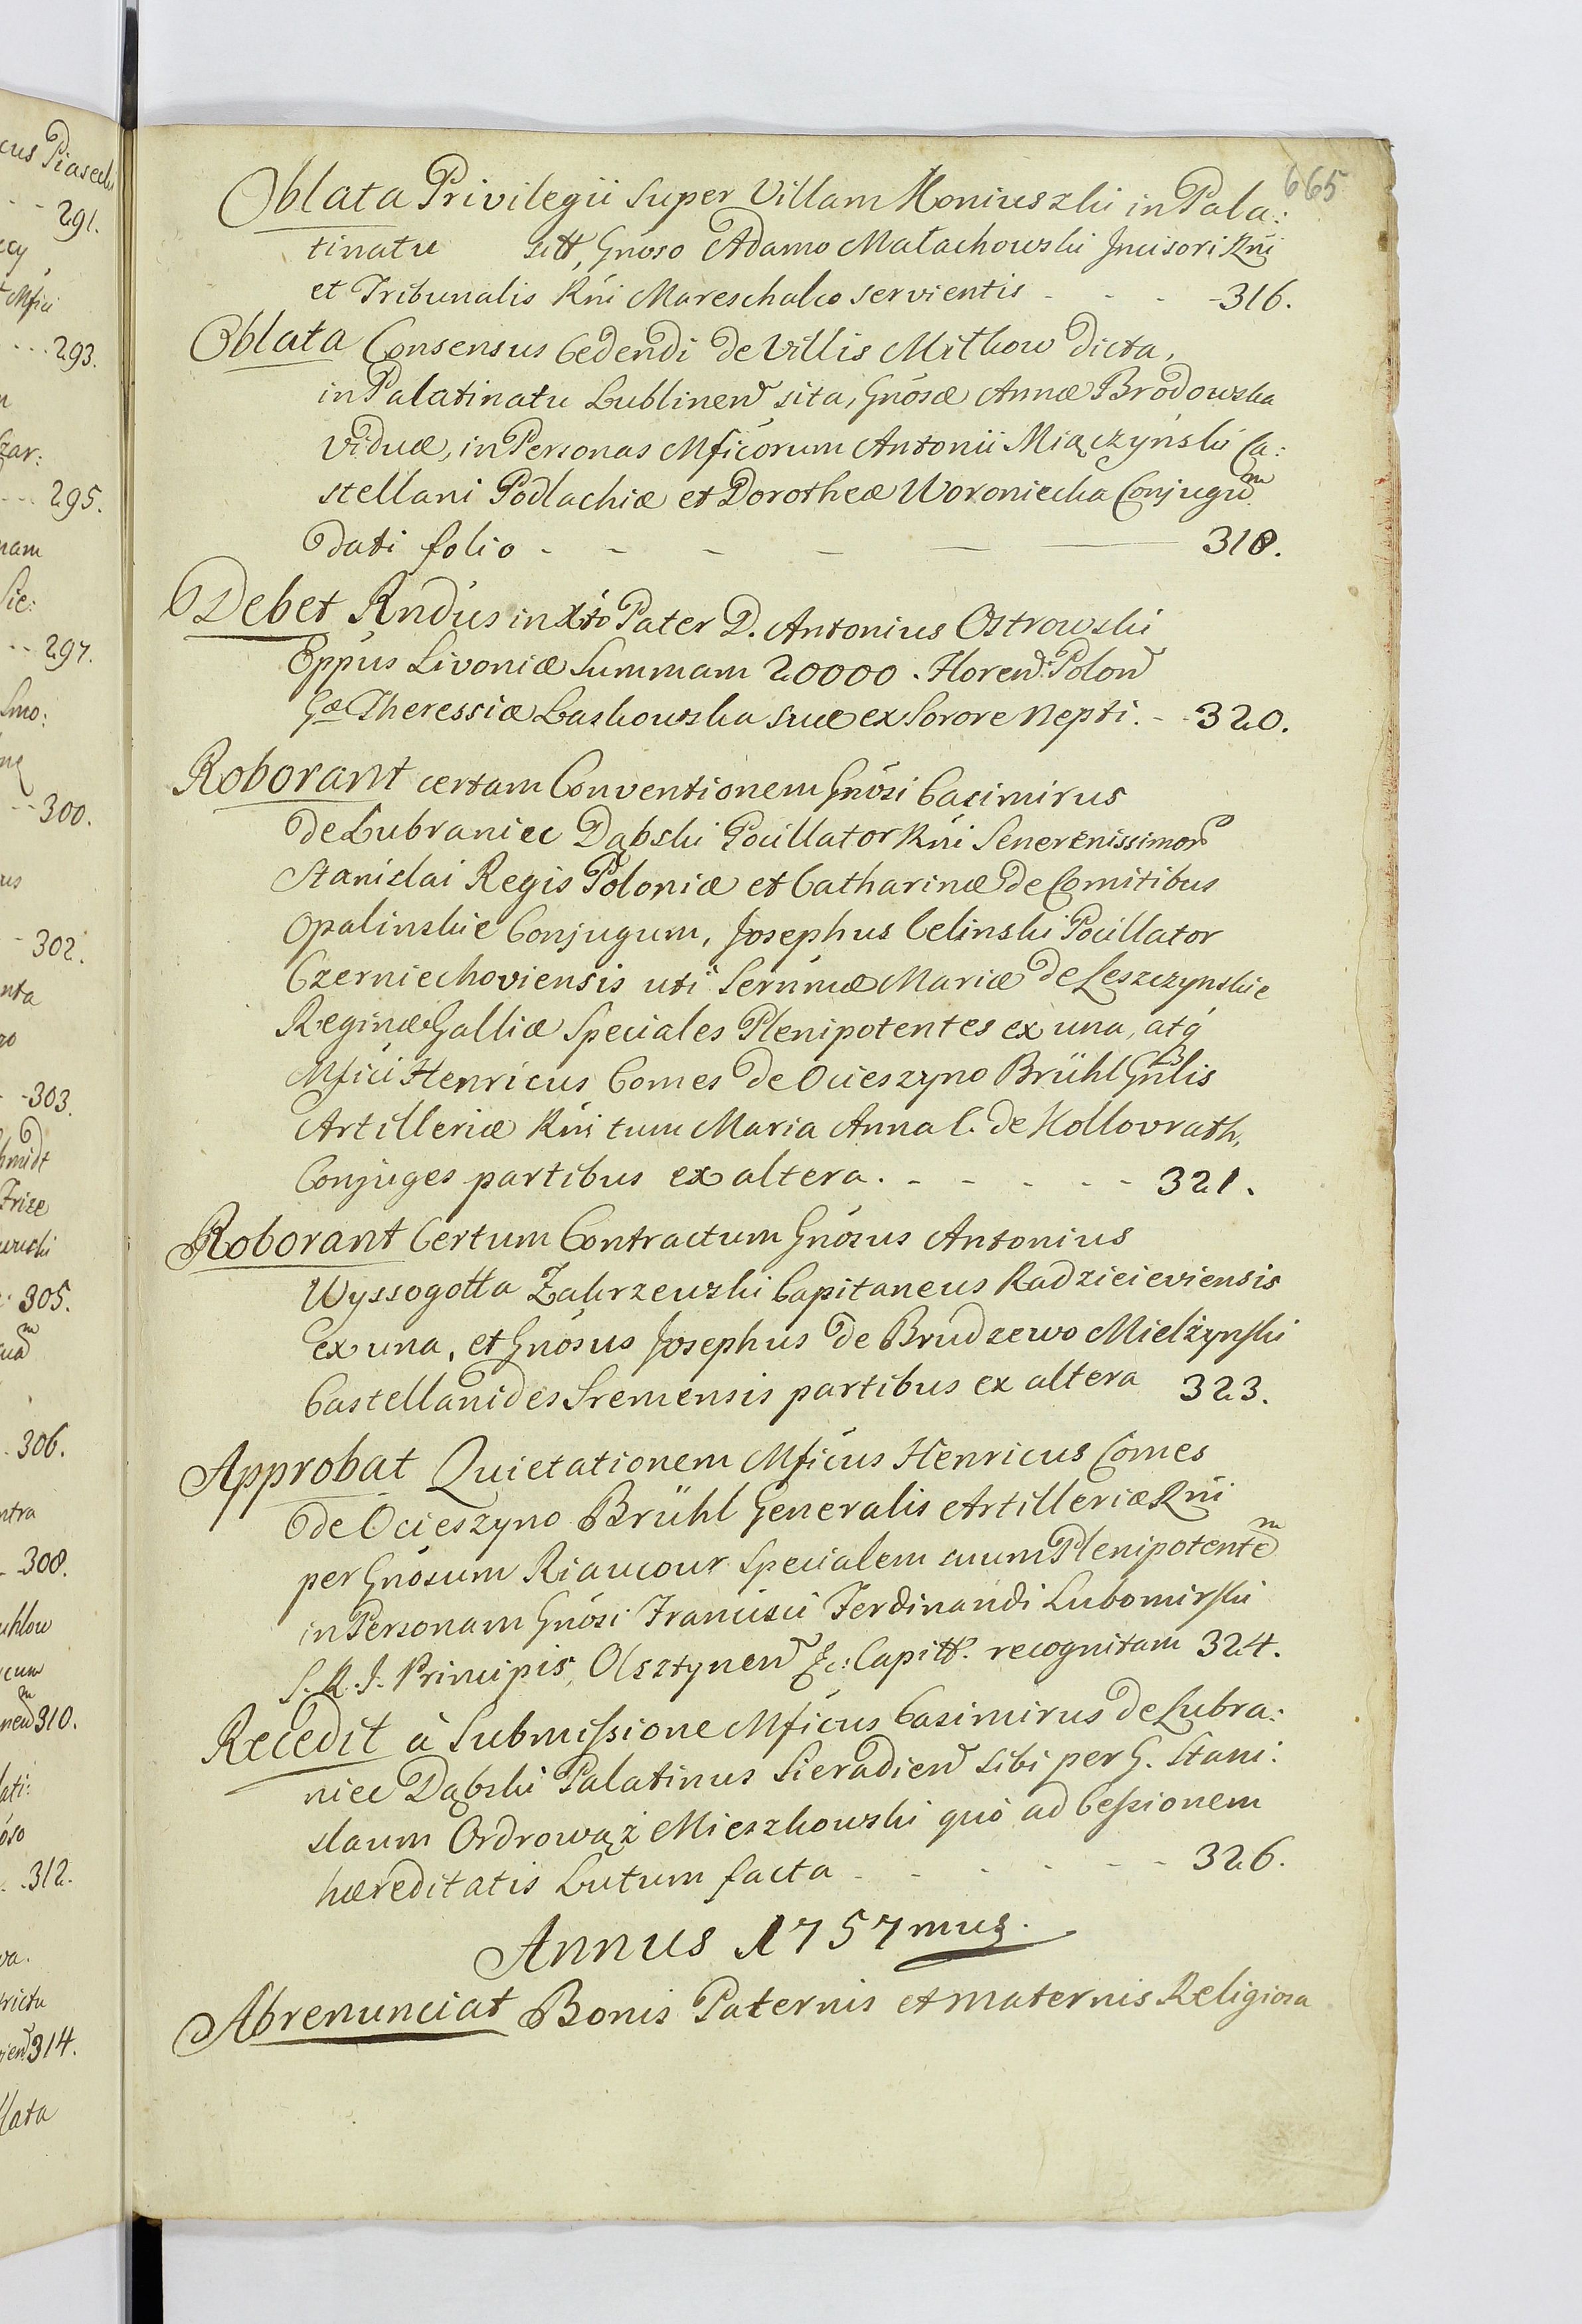 cus Piasecki
291.
cy
Mfici
293.
zar:
295.
nam
Sie:
297.
Smo:
300.
us
302.
nta
303.
hmidt
Frize
305.
306.
ntra
308.
310.
lati:
óso
312.
va.
314.
lata
665
Oblata Privilegii super Villam Moniuszki in Pala:
tinatu sitt, Gnoso Adamo Małachowski Incisori Rni
et Tribunalis Rni Mareschalco servientis - - - 316.
Oblata Consensus Cedendi de Villis Mithow dicta,
in Palatinatu Lublinen sita, Gnosæ Annæ Brodowska
Viduæ, in Personas Mficorum Antonii Miączyński Ca:
stellani Podlachiæ et Dorotheæ Woroniecka Conjugum
dati folio - - - - - 318.
Debet Rndus in Xto Pater D. Antonius Ostrowski
Eppus Livoniæ Summam 20000. Floren: Polon
Gæ Theressiæ Laskowska suæ ex Sorore Nepti. - - 320.
Roborant certam Conventionem Gnosi Casimirus
de Lubraniec Dąbski Pocillator Rni Senerenissimor
Stanislai Regis Poloniæ et Catharinæ de Comitibus
Opalinskie Conjugum, Josephus Celinski Pocillator
Czerniechoviensis uti Sernmæ Mariæ de Leszczynskie
Reginæ Galliæ Speciales Plenipotentes ex una, atq
Mfici Henricus Comes de Ocieszyno Brühl Gnlis
Artilleriæ Rni tum Maria Anna C. de Kollovrath,
Conjuges partibus ex altera. - - - - - 321.
Roborant Certum Contractum Gnosus Antonius
Wyssogotta Zakrzewski Capitaneus Radzieieviensis
ex una, et Gnosus Josephus de Brudzewo Mielżynski
Castellanides Sremensis partibus ex altera 323.
Approbat Quietationem Mficus Henricus Comes
de Ocieszyno Brühl Generalis Artilleriæ Rni
per Gnosum Riaucour Specialem suum Plenipotentem
in Personam Gnosi Francisci Ferdinandi Lubomirski
S. R. I. Principis, Olsztynen &c: Capitt. recognitam 324.
Recedit à Submissione Mficus Casimirus de Lubra:
niec Dąbski Palatinus Sieradien sibi per G. Stani:
slaum Ordrowąż Mieszkowski quò ad Cessionem
hæreditatis Lutum facta - - - - - 326.
Annus 1757mus.
Abrenunciat Bonis Paternis et maternis Religiosa